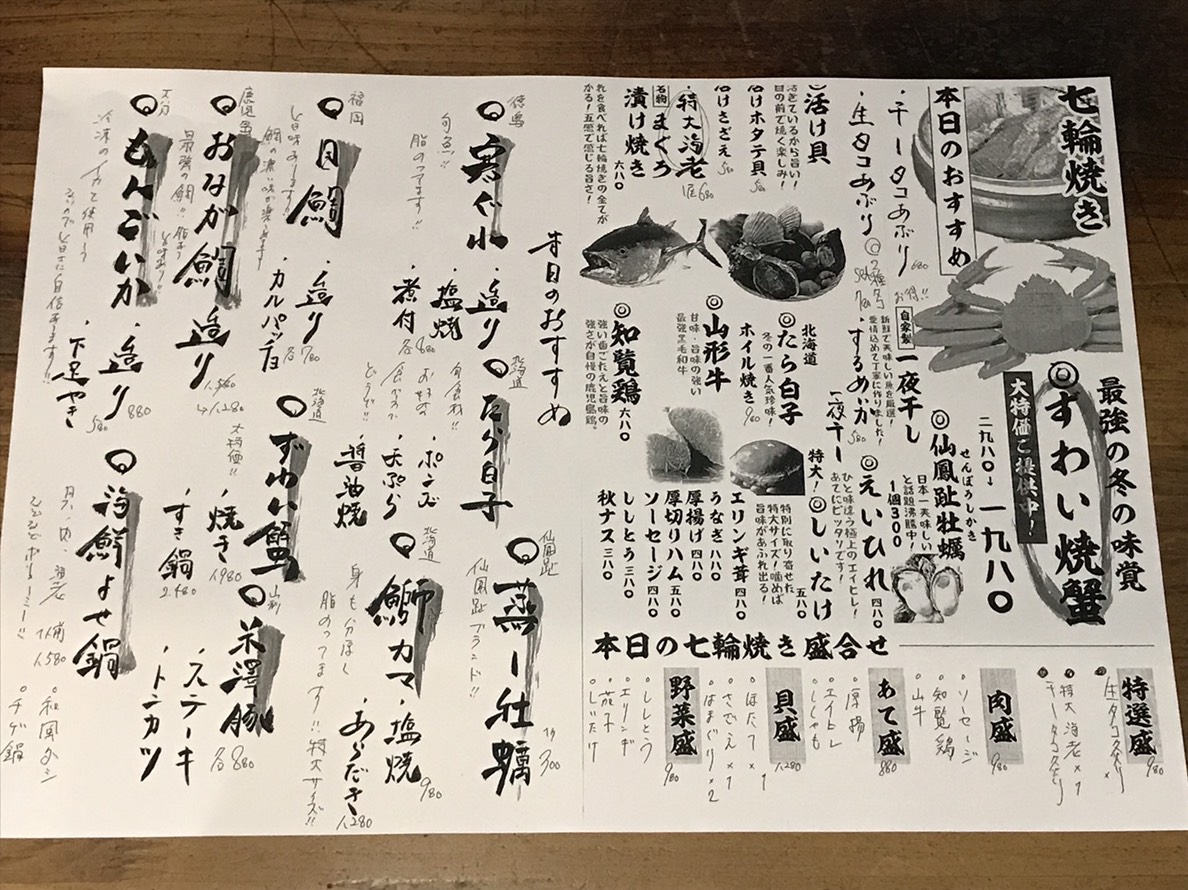 七輪焼き
本日のおすすめ
・干しタコあぶり 680
・生タコあぶり
お得!!
・するめいか
一夜干し 580
活け貝
活きているから旨い!
目の前で焼く楽しみ!
活けホタテ貝
活けさざえ
・特大海老
1匹 680
名物
まぐろ
漬け焼き 六八〇
これを食べれば七輪焼きの全てが
わかる!五感で感じる旨さ!
最強の冬の味覚
◎ずわい焼蟹
大特価ご提供中!
二九八〇→一九八〇
自家製
一夜干し
新鮮で美味しい魚を厳選!
愛情込めて丁寧に作りました!
◎仙鳳趾牡蠣
せんぽうしかき
日本一美味しい
と話題沸騰中!
1個300
◎えいひれ 四八〇
ひと味違う極上のエイヒレ!
あてにピッタリです!
特大!
◎しいたけ 五八〇
特別に取り寄せた
特大サイズ!噛めば
旨味があふれ出る!
北海道
◎たら白子
ホイル焼き 980
冬の一番人気珍味!
◎山形牛
甘味・旨味の強い
最強黒毛和牛
◎知覧鶏 六八〇
強い歯ごたえと旨味の
強さが自慢の鹿児島鶏。
エリンギ茸 四八〇
うなぎ 八八〇
厚揚げ 四八〇
厚切りハム 五八〇
ソーセージ 四八〇
ししとう 三八〇
秋ナス 三八〇
本日の七輪焼き盛合せ
特選盛 980
・特大海老×1
肉盛 980
・ソーセージ
・知覧鶏
・山牛
あて盛 880
・厚揚
・エイヒレ
・ししゃも
貝盛 1,280
・ほたて×1
・さざえ×1
・はまぐり×2
野菜盛 980
・ししとう
・エリンギ
・茄子
・しいたけ
本日のおすすめ
徳島
◎寒ぐれ
旬魚!!
脂のってます!!
・造り
・塩焼
・煮付
各880
福岡
◎目鯛
・造り
・カルパッチョ
各780
鹿児島
◎おなが鯛 造り
最強の鯛!!
1,280
大分
◎もんごいか
・造り 880
・下足やき 580
北海道
◎たら白子
・ポン酢
・天ぷら
・醤油焼
北海道
◎ずわい蟹
大特価!!
・焼き 1,980
・すき鍋 2,480
◎海鮮よせ鍋
1人前 1,580
・チゲ鍋
仙鳳趾
◎蒸し牡蠣
仙鳳趾ブランド!!
300
北海道
◎鰤カマ
・塩焼 980
・あらだき 1,280
脂のってます!!特大サイズ!!
◎米澤豚
・ステーキ
・トンカツ
各880